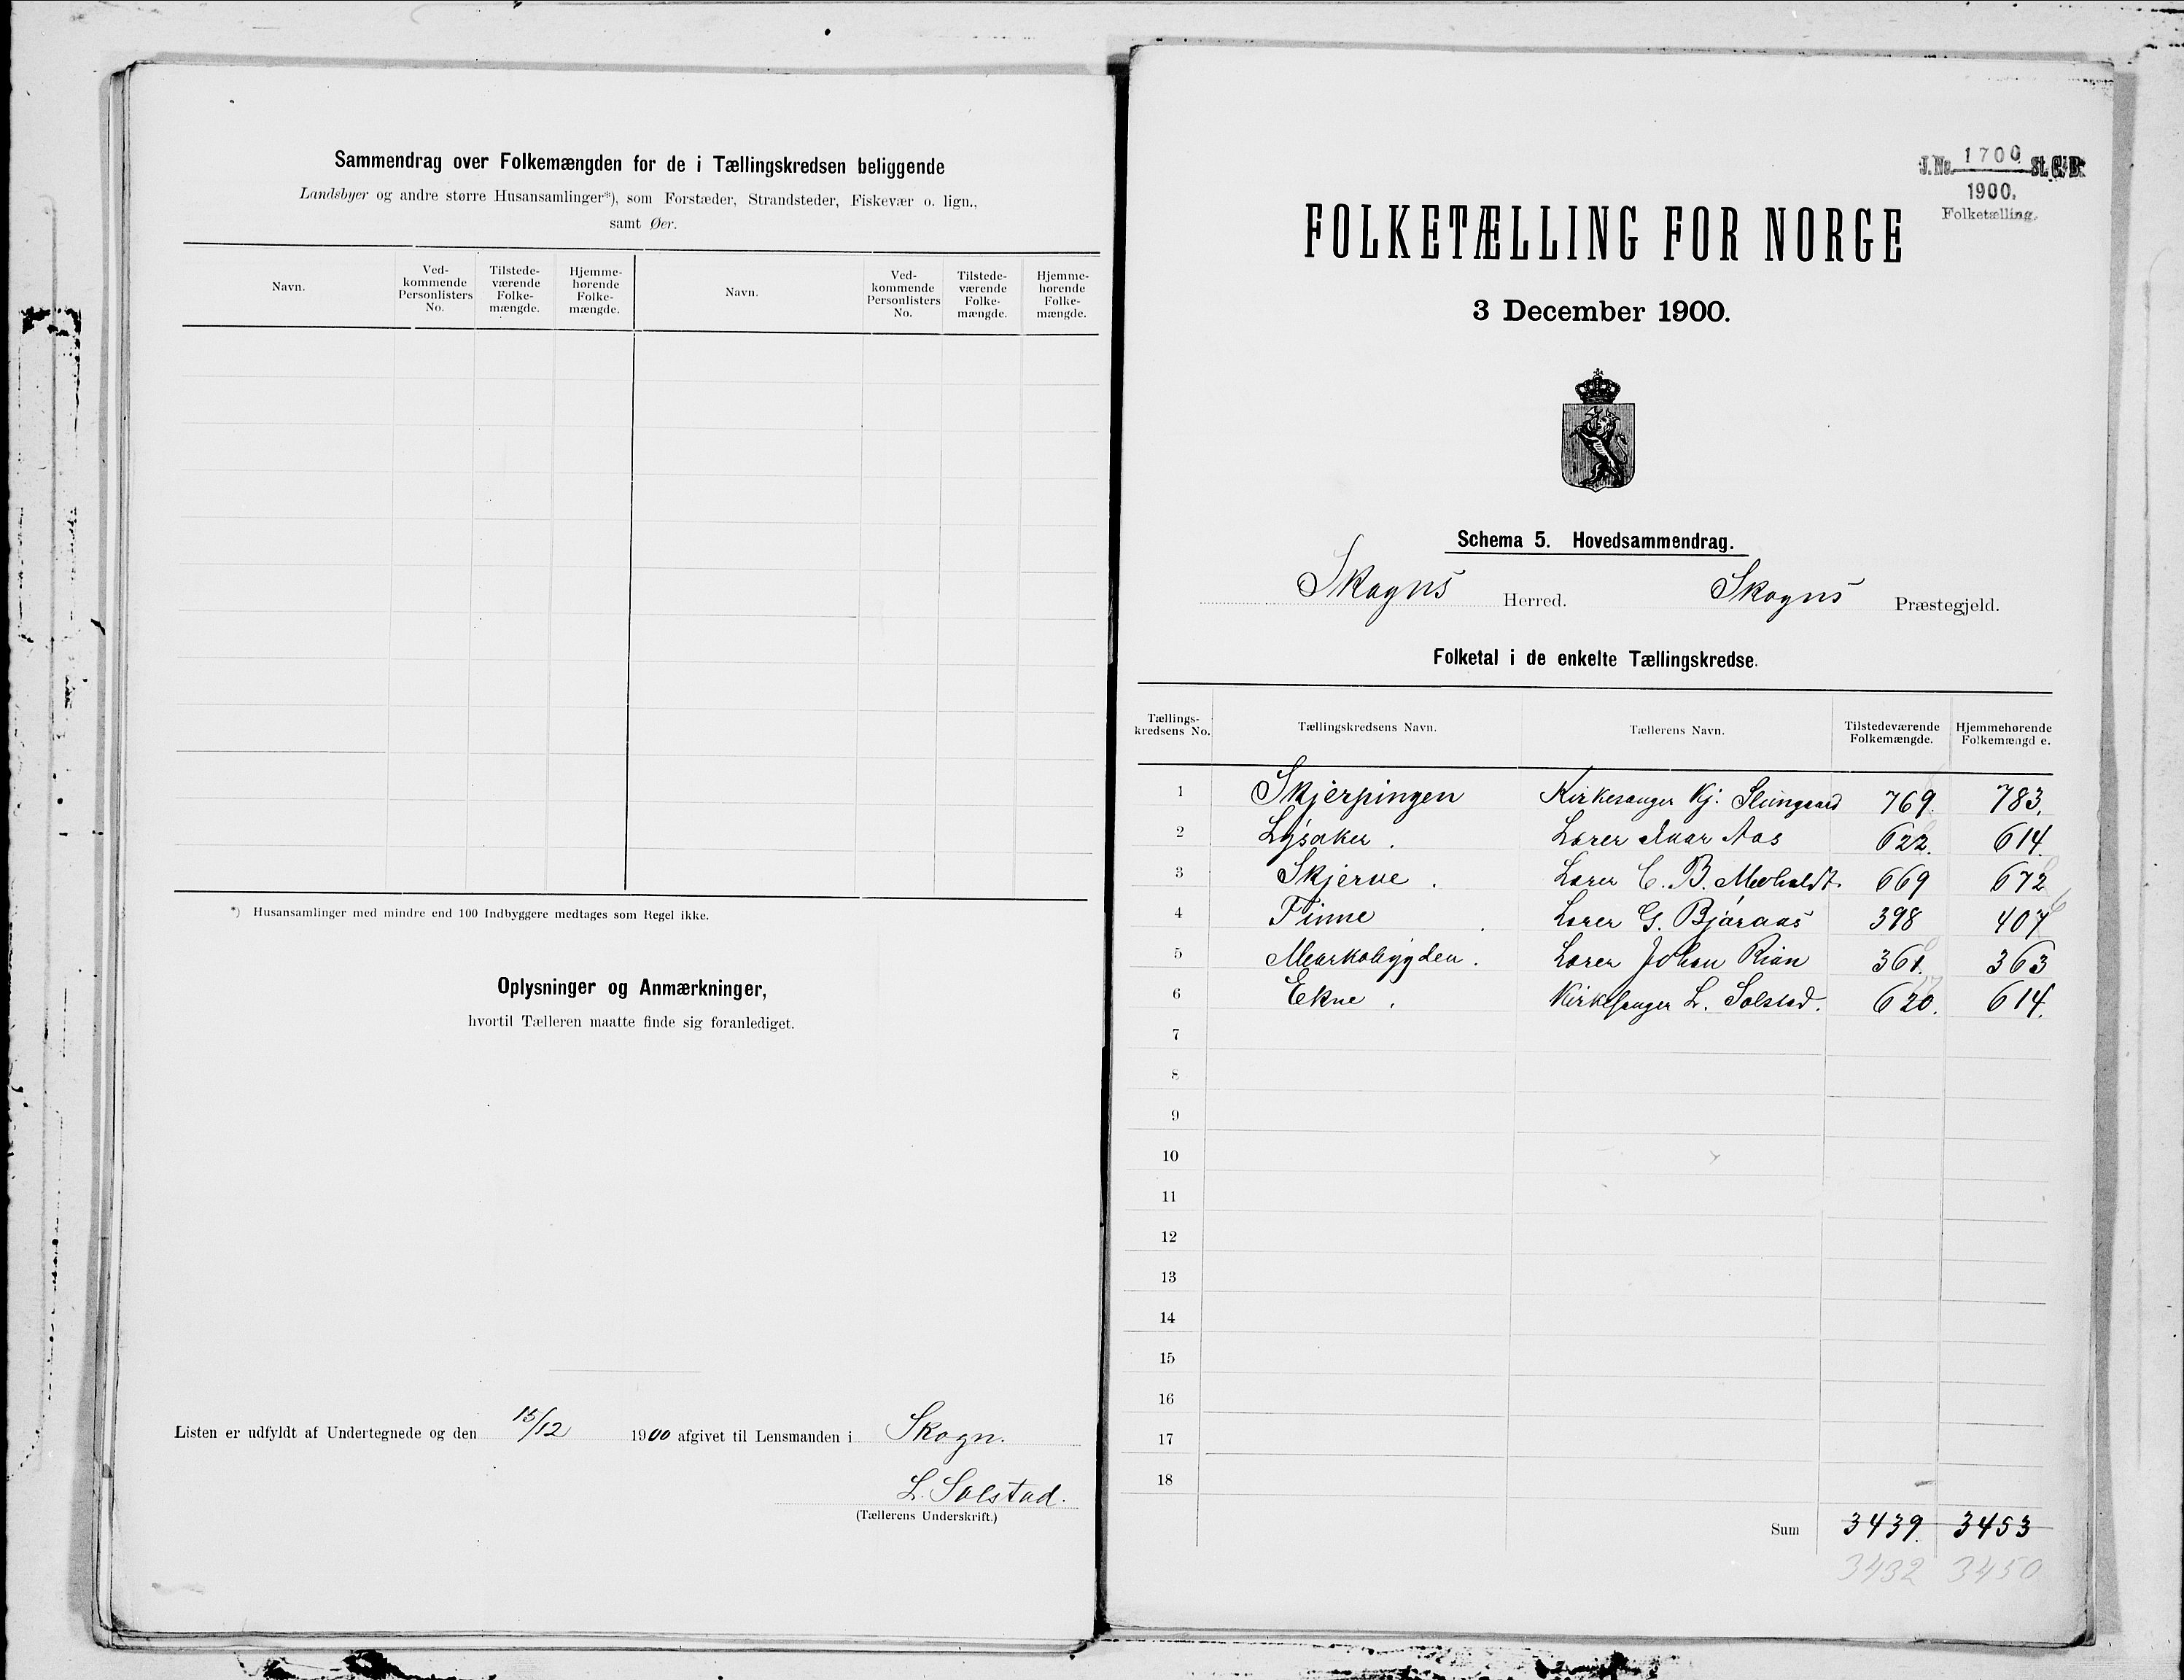 Sammendrag over Folkemængden for de i Tællingskredsen beliggende
Landsbyer og andre større Husansamlinger*), som Forstæder, Strandsteder, Fiskevær o. lign.,
samt Øer.
Navn. Ved-kommende Personlisters No. Tilstede-værende Folke-mængde. Hjemme-hørende Folke-mængde. Navn. Ved-kommende Personlisters No. Tilstede-værende Folke-mængde. Hjemme-hørende Folke-mængde.
*) Husansamlinger med mindre end 100 Indbyggere medtages som Regel ikke.
Oplysninger og Anmærkninger,
hvortil Tælleren maatte finde sig foranlediget.
Listen er udfyldt af Undertegnede og den 15/12 1900 afgivet til Lensmanden i Skogn.
L. Solstad.
(Tællerens Underskrift.)
J. No. 1700 St. C. B.
1900.
Folketælling.
FOLKETÆLLING FOR NORGE
3 December 1900.
Schema 5. Hovedsammendrag.
Skogns Herred. Skogns Præstegjeld.
Folketal i de enkelte Tællingskredse.
Tællings-kredsens No. Tællingskredsens Navn. Tællerens Navn. Tilstedeværende Folkemængde. Hjemmehørende Folkemængde.
1 Skjerpingen Kirkesanger Kj. 769. 783.
2 Lysaker . Lærer Ivar Aas 622. 614.
3 Skjerve . Lærer C. B. 669 672
4 Finne . Lærer G. Bjåraas 398 407
5 Markabygden . Lærer Johan Rian 361. 363
6 Ekne . Kirkesanger L. Solstad. 620. 614.
7
8
9
10
11
12
13
14
15
16
17
18
Sum 3439. 3453
3432 3450